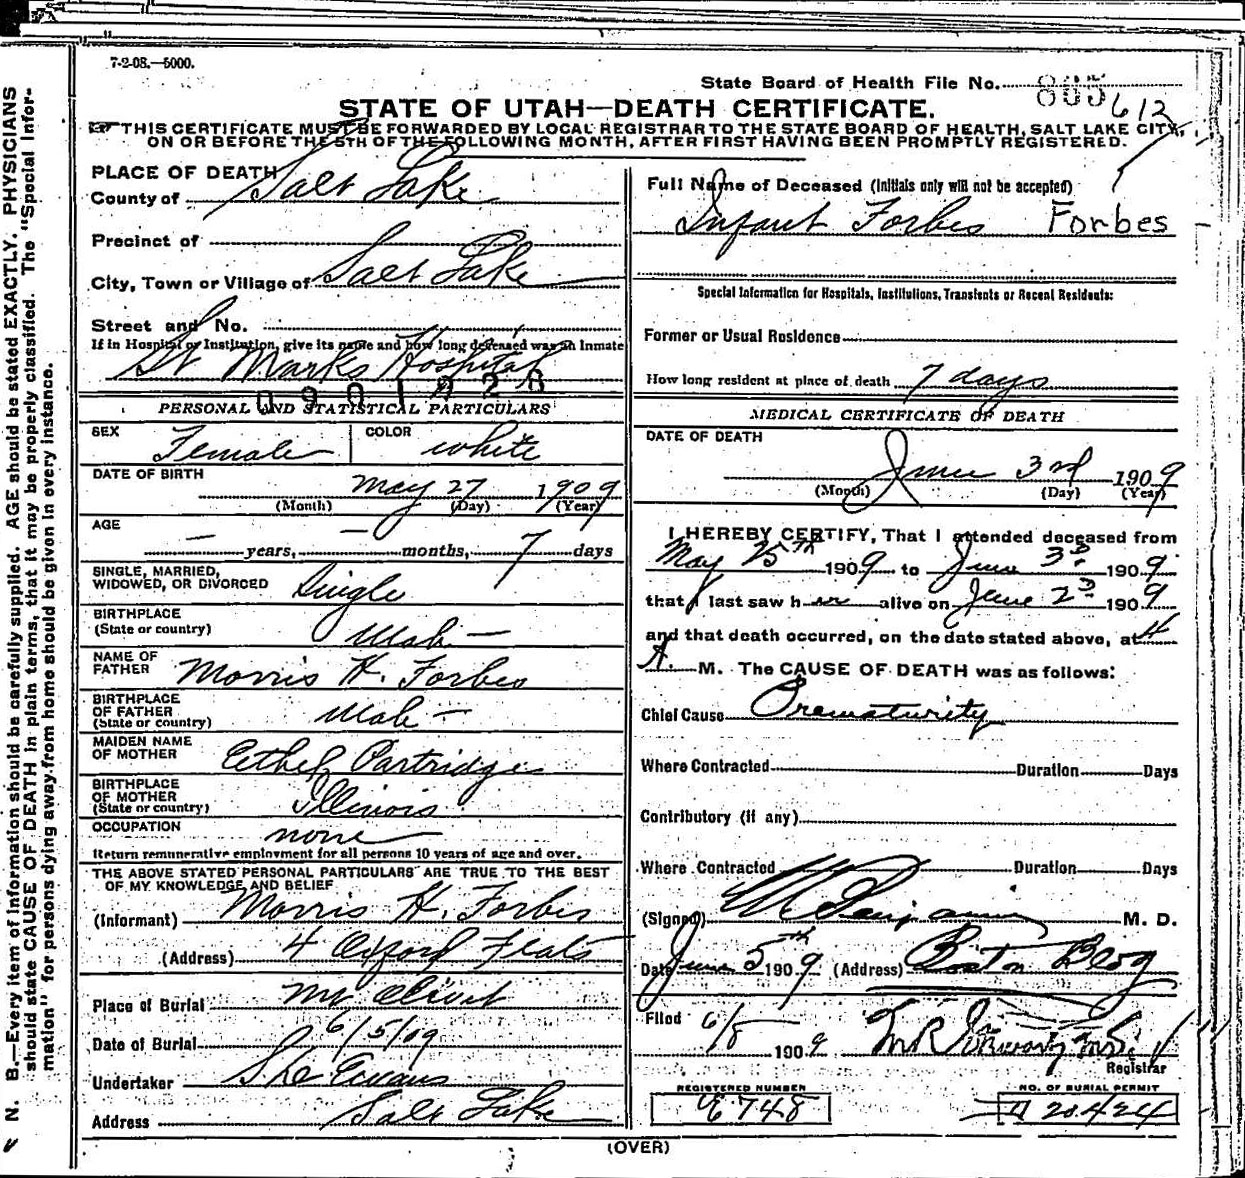 7-2-08.—5000.
State Board of Health File No. 805 612
STATE OF UTAH—DEATH CERTIFICATE.
THIS CERTIFICATE MUST BE FORWARDED BY LOCAL REGISTRAR TO THE STATE BOARD OF HEALTH, SALT LAKE CITY,
ON OR BEFORE THE 5TH OF THE FOLLOWING MONTH, AFTER FIRST HAVING BEEN PROMPTLY REGISTERED.
PLACE OF DEATH
County of Salt Lake
Precinct of
City, Town or Village of Salt Lake
Street and No.
If in Hospital or Institution, give its name and how long deceased was an Inmate
St Marks Hospital
0901928
PERSONAL AND STATISTICAL PARTICULARS
SEX Female COLOR White
DATE OF BIRTH
May 27 1909
(Month) (Day) (Year)
AGE
— years, — months, 7 days
SINGLE, MARRIED,
WIDOWED, OR DIVORCED Single
BIRTHPLACE
(State or country) Utah —
NAME OF
FATHER Morris H. Forbes
BIRTHPLACE
OF FATHER
(State or country) Utah —
MAIDEN NAME
OF MOTHER Ethel Partridge
BIRTHPLACE
OF MOTHER
(State or country) Illinois
OCCUPATION none
Return remunerative employment for all persons 10 years of age and over.
THE ABOVE STATED PERSONAL PARTICULARS ARE TRUE TO THE BEST
OF MY KNOWLEDGE AND BELIEF
(Informant) Morris H. Forbes
(Address) 4 Oxford Flats
Place of Burial Mt Olivet
Date of Burial 6/5/09
Undertaker Evans
Address Salt Lake
Full Name of Deceased (Initials only will not be accepted)
Infant Forbes Forbes
Special Information for Hospitals, Institutions, Transients or Recent Residents:
Former or Usual Residence
How long resident at place of death 7 days
MEDICAL CERTIFICATE OF DEATH
DATE OF DEATH
June 3rd 1909
(Month) (Day) (Year)
I HEREBY CERTIFY, That I attended deceased from
May 25th 1909 to June 3D 1909
that I last saw her alive on June 2D 1909
and that death occurred, on the date stated above, at 4
A M. The CAUSE OF DEATH was as follows:
Chief Cause Prematurity
Where Contracted Duration Days
Contributory (if any)
Where Contracted Duration Days
(Signed) Benjamin M. D.
Date June 5th 1909 (Address) Boston Bldg
Filed 6/8 1909
Registrar
REGISTERED NUMBER
E748
NO. OF BURIAL PERMIT
20424
(OVER)
N. B.—Every item of information should be carefully supplied. AGE should be stated EXACTLY. PHYSICIANS
should state CAUSE OF DEATH in plain terms, that it may be properly classified. The "Special Infor-
mation" for persons dying away from home should be given in every instance.